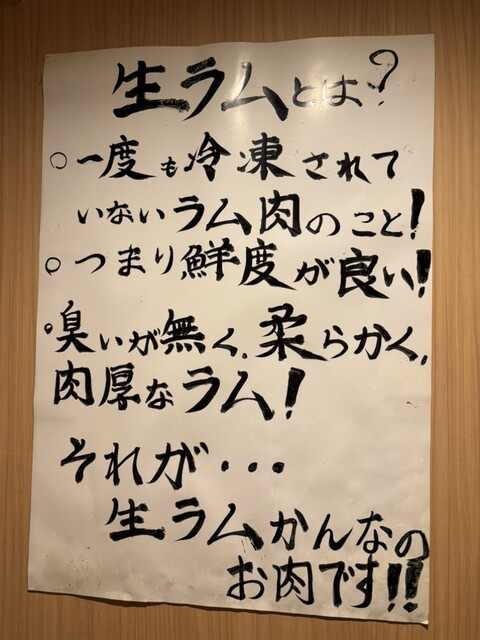 生ラムとは?
○一度も冷凍されて
いないラム肉のこと!
○つまり鮮度が良い!
○臭いが無く、柔らかく、
肉厚なラム!
それが・・・
生ラムかんなの
お肉です!!